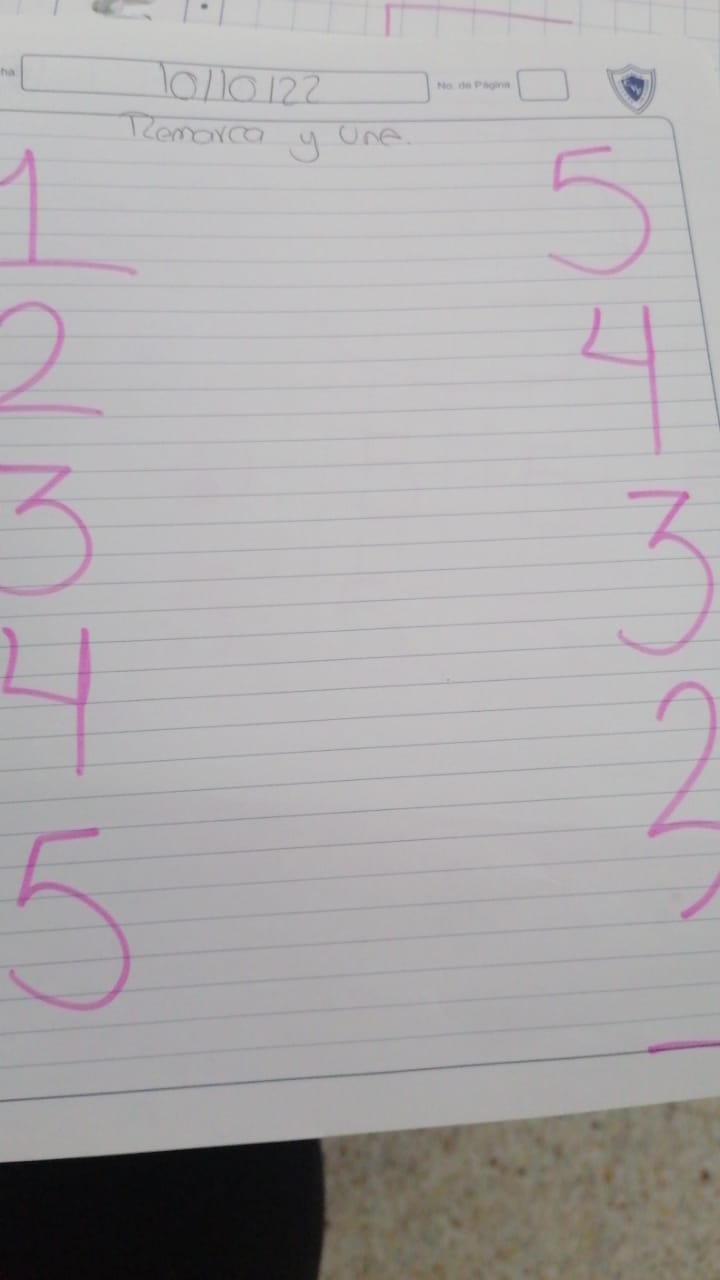 ha 10/10/22 No. de Página
Remarca y une.
1 5
2 4
3 3
4 2
5 1